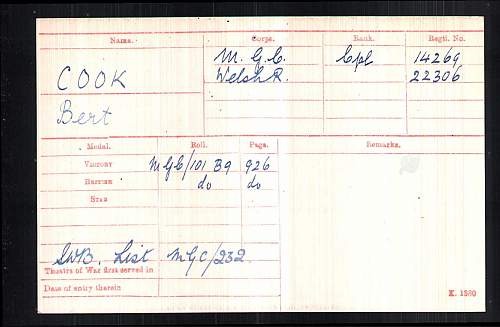 Name. Corps. Rank. Regtl. No.
COOK M.G.C. Cpl 14269
Welsh R. 22306
Bert
Medal. Roll. Page. Remarks.
Victory MGC/101 B9 926
British do do
Star
SWB. List MGC/232.
Theatre of War first served in
Date of entry therein
K. 1380